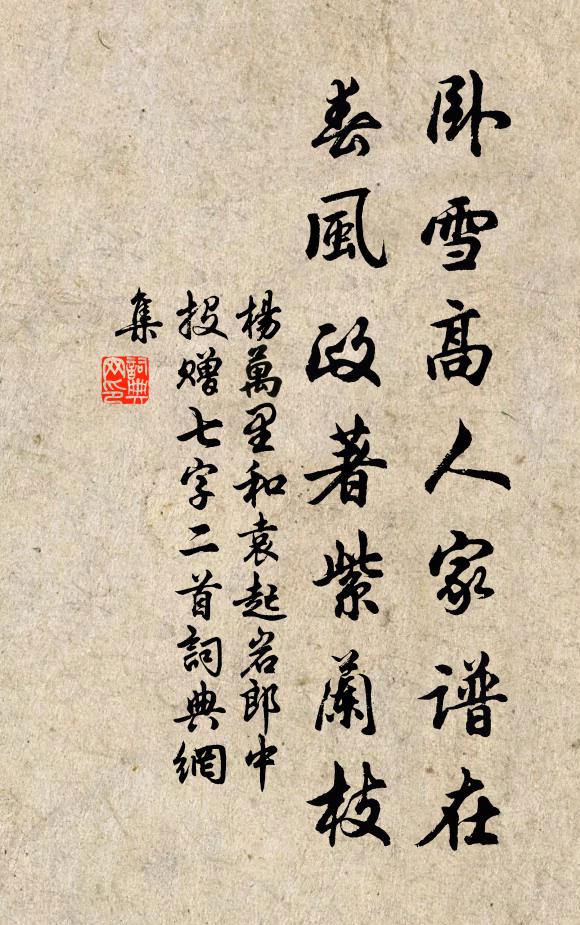 卧雪高人家谱在
春風政著紫蘭枝
楊萬里和袁起岩郎中
投贈七字二首詞典網
集
詞典
网印